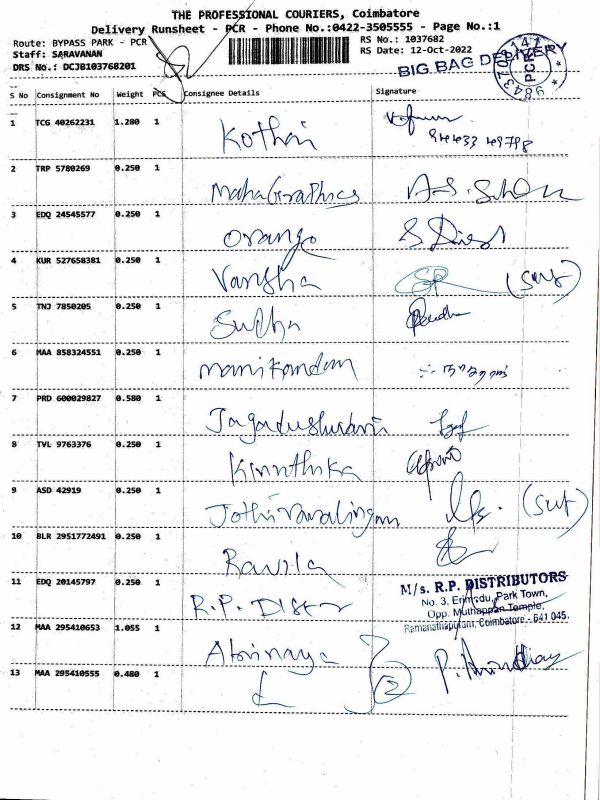 THE PROFESSIONAL COURIERS, Coimbatore
Delivery Runsheet - PCR - Phone No.:0422-3505555 - Page No.:1
Route: BYPASS PARK - PCR RS No.: 1037682
Staff: SARAVANAN RS Date: 12-Oct-2022
DRS No.: DCJB103768201
BIG BAG DELIVERY
PCR
S No Consignment No Weight PCS Consignee Details Signature
1 TCG 40262231 1.280 1 Kothai
2 TRP 5780269 0.250 1 Maha Graphics
3 EDQ 24545577 0.250 1 Orange
4 KUR 527658381 0.250 1 Varsha
5 TNJ 7850205 0.250 1 Sudha
6 MAA 858324551 0.250 1 manikandan
7 PRD 600029827 0.580 1
8 TVL 9763376 0.250 1 Kiruthika
9 ASD 42919 0.250 1
10 BLR 2951772491 0.250 1
11 EDQ 20145797 0.250 1 R.P. Distr
M/s. R.P. DISTRIBUTORS
No. 3, Erimedu, Park Town,
Opp. Muthappan Temple,
Ramanathapuram, Coimbatore - 641 045.
12 MAA 295410653 1.055 1 Abinaya
13 MAA 295410555 0.480 1 2